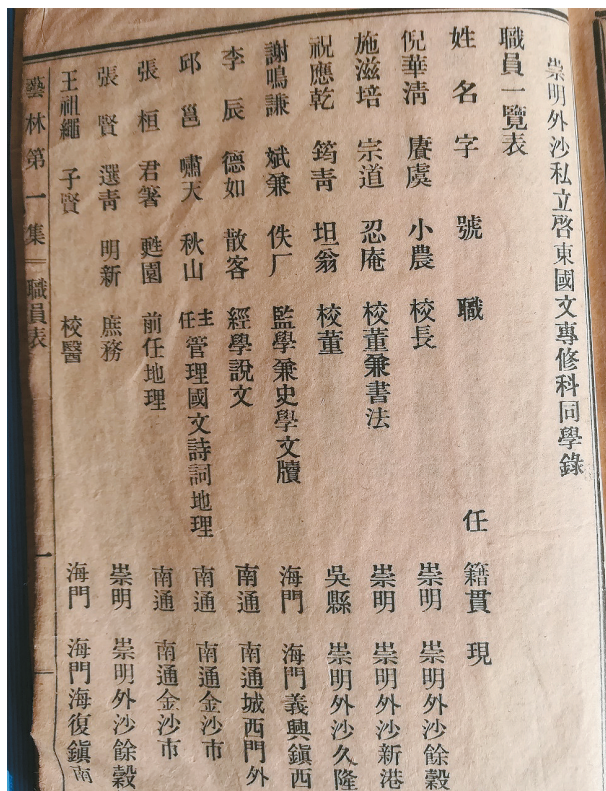 崇明外沙私立啓東國文專修科同學錄
職員一覽表
姓名 字 號 職任 籍貫 現
倪華清 賡虞 小農 校長 崇明 崇明外沙餘穀
施滋培 宗道 忍庵 校董兼書法 崇明 崇明外沙新港
祝應乾 筠青 坦翁 校董 吳縣 崇明外沙久隆
謝鳴謙 斌兼 佚厂 監學兼史學文牘 海門 海門義興鎭西
李辰 德如 散客 經學說文 南通 南通城西門外
邱邕 嘯天 秋山 主任管理國文詩詞地理 南通 南通金沙市
張桓 君箸 甦園 前任地理 南通 南通金沙市
張賢 選青 明新 庶務 崇明 崇明外沙餘穀
王祖繩 子賢 校醫 海門 海門海復鎭南
藝林第一集 職員表 一